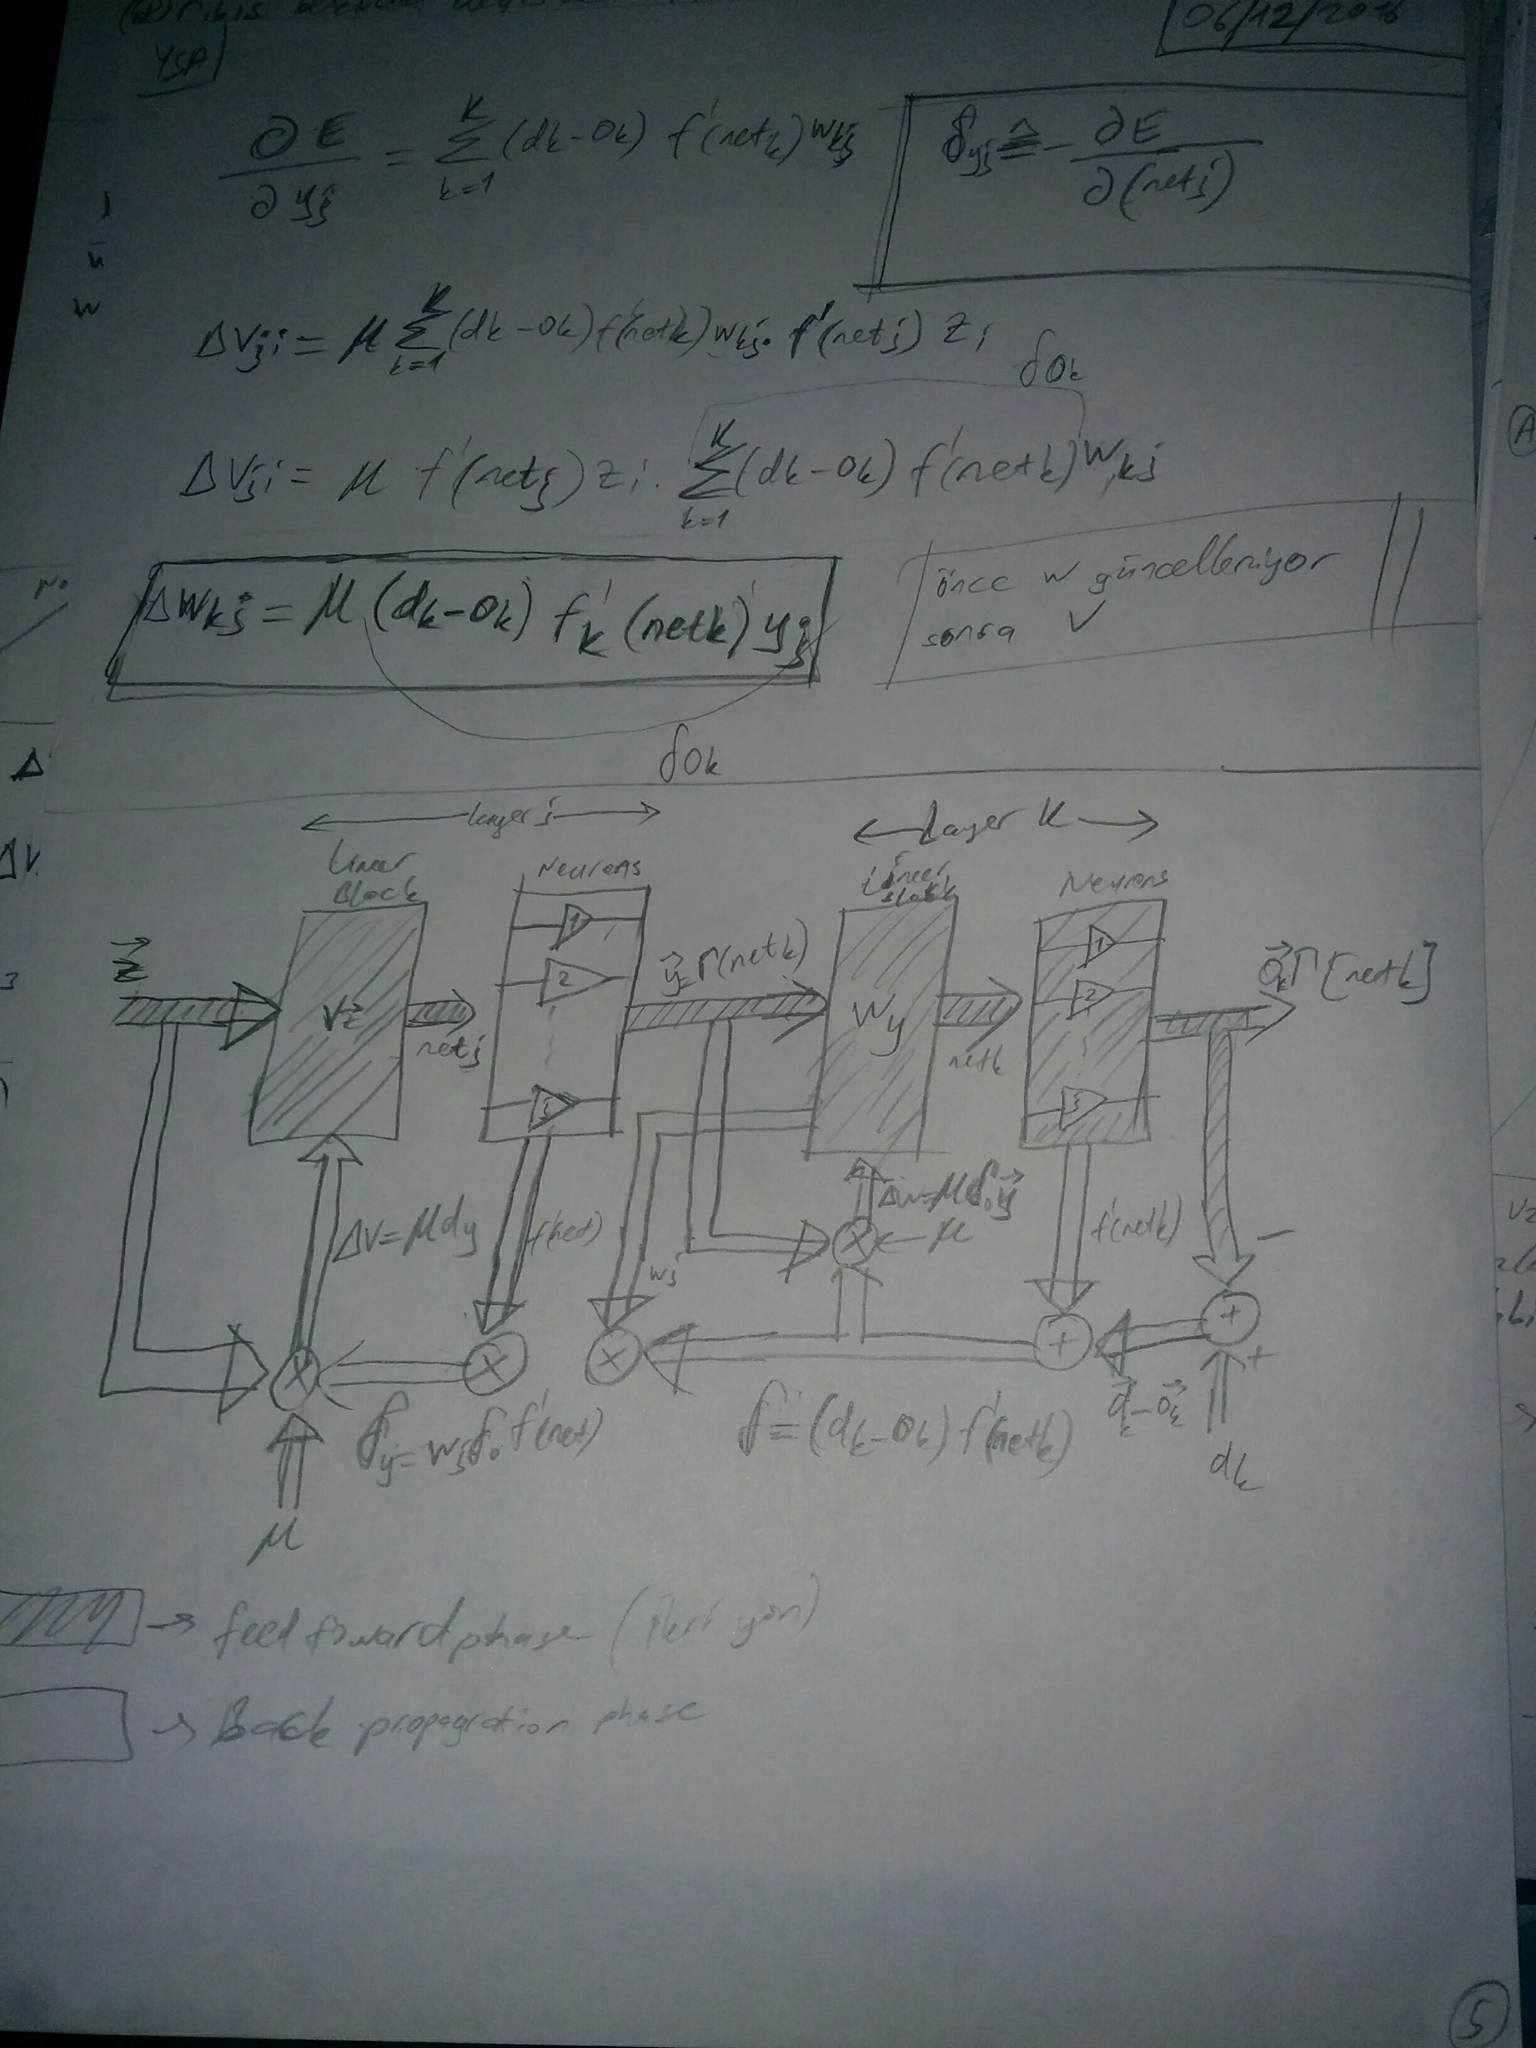 YSA
06/12/2016
∂E/∂yj = Σ_{k=1}^{K} (dk-Ok) f'(netk) wkj
δyj ≜ - ∂E/∂(netj)
ΔVji = μ Σ_{k=1}^{K} (dk-Ok) f'(netk) wkj. f'(netj) zi
δOk
ΔVji = μ f'(netj) zi. Σ_{k=1}^{K} (dk-Ok) f'(netk) wkj
ΔWkj = μ (dk-Ok) f'k (netk) yj
önce w güncelleniyor
sonra V
δOk
Layer j
Layer K
Linear
Block
Neurons
Linear
Block
Neurons
z
1
1
2
2
y=Γ(netk)
Ok Γ[netk]
Vz
netj
Wy
netk
j
3
ΔV=μdy
f'(net)
wj
Δw=μδoy
μ
f'(netk)
-
+
+
+
x
x
x
x
δy=wjδo f'(net)
δ=(dk-Ok) f'(netk)
dk-Ok
dk
μ
→ feed foward phase (ileri yön)
→ Back propagration phase
5